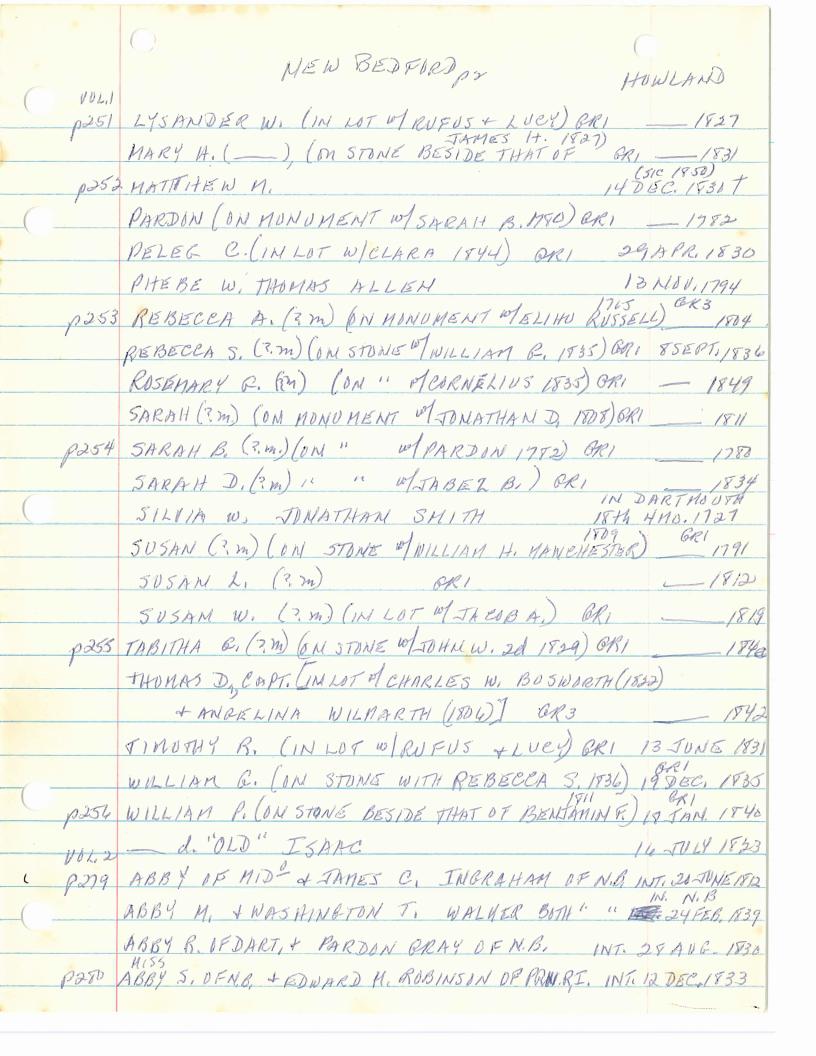 NEW BEDFORD p2 HOWLAND
VOL.1
p251 LYSANDER W. (IN LOT w/ RUFUS + LUCY) GR1 —— 1827
JAMES H. 1827)
MARY H. (——), (ON STONE BESIDE THAT OF GR1 —— 1831
(SIC 1850)
p252 MATTHEW M. 14 DEC. 1830 †
PARDON (ON MONUMENT w/ SARAH B. 1780) GR1 —— 1782
PELEG C. (IN LOT W/ CLARA 1844) GR1 29 APR. 1830
PHEBE W. THOMAS ALLEN 13 NOV. 1794
1765 GR3
p253 REBECCA A. (?m) (ON MONUMENT w/ ELIHU RUSSELL) —— 1804
REBECCA S. (?m) (ON STONE w/ WILLIAM G. 1835) GR1 8 SEPT. 1836
ROSEMARY G. (?m) (ON " w/ CORNELIUS 1835) GR1 — 1849
SARAH (?m) (ON MONUMENT w/ JONATHAN D. 1808) GR1 —— 1811
p254 SARAH B. (?m.) (ON " w/ PARDON 1782) GR1 —— 1780
SARAH D. (?m) " " w/ JABEZ B.) GR1 —— 1834
IN DARTMOUTH
SILVIA W. JONATHAN SMITH 18th 4MO. 1727
1809 GR1
SUSAN (?m) (ON STONE w/ WILLIAM H. MANCHESTER) —— 1791
SUSAN L. (?m) GR1 —— 1812
SUSAN W. (?m) (IN LOT w/ JACOB A.) GR1 —— 1819
p255 TABITHA G. (?m) (ON STONE w/ JOHN W. 2d 1829) GR1 ——
THOMAS D., CAPT. [IN LOT w/ CHARLES W. BOSWORTH (1822)
+ ANGELINA WILMARTH (1806)] GR3 —— 1842
TIMOTHY R. (IN LOT w/ RUFUS + LUCY) GR1 13 JUNE 1831
GR1
WILLIAM G. (ON STONE WITH REBECCA S. 1836) 19 DEC. 1835
1811 GR1
p256 WILLIAM P. (ON STONE BESIDE THAT OF BENJAMIN F.) 18 JAN. 1840
—— d. "OLD" ISAAC 16 JULY 1823
VOL. 2
p279 ABBY OF MIDº & JAMES C. INGRAHAM OF N.B. INT. 20 JUNE 1812
IN. N.B
ABBY M. + WASHINGTON T. WALKER BOTH " " 24 FEB. 1839
ABBY R. OF DART, + PARDON GRAY OF N.B. INT. 28 AUG. 1830
MISS
p280 ABBY S. OF N.B, + EDWARD M. ROBINSON OF INT. 12 DEC. 1833